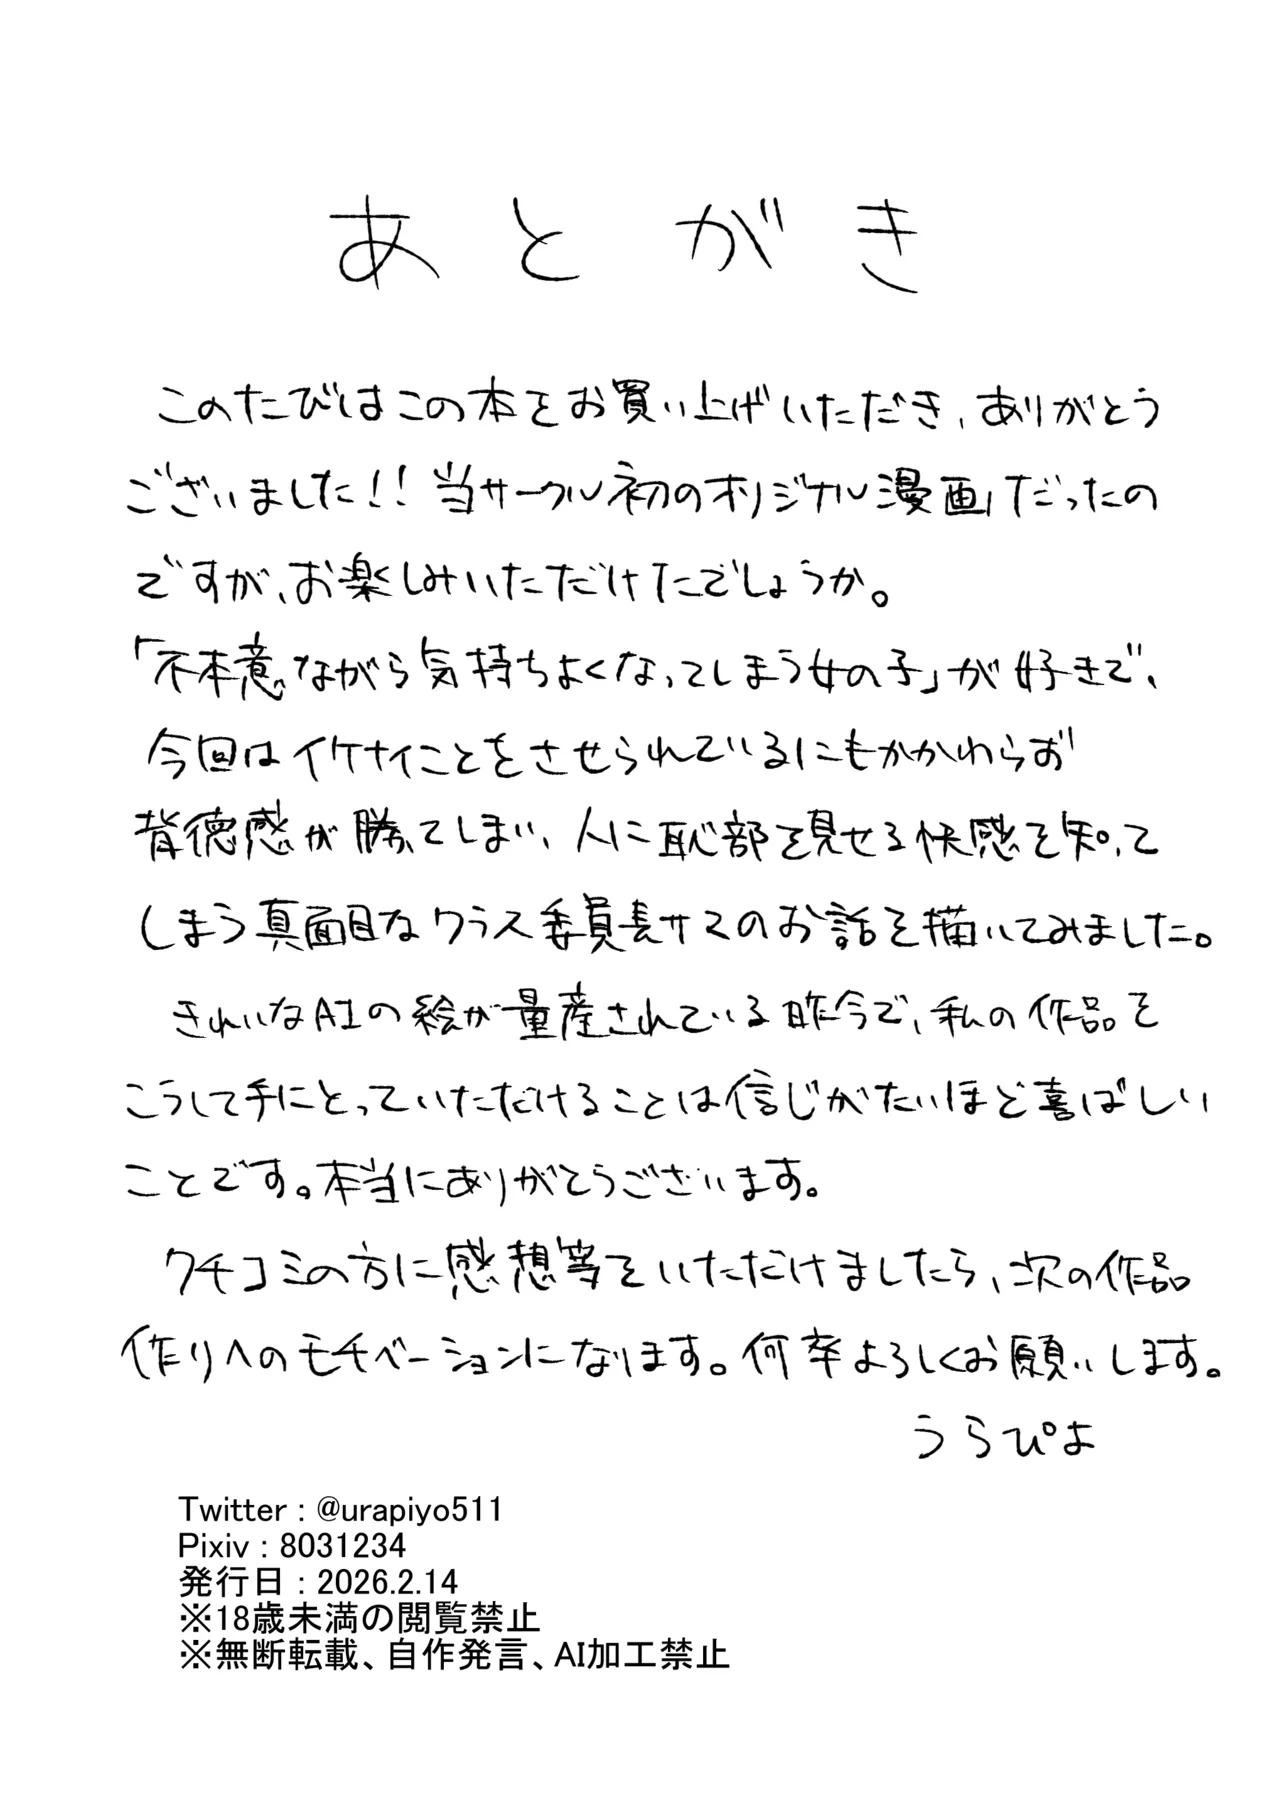 あとがき
このたびはこの本をお買い上げいただき、ありがとう
ございました!! 当サークル初のオリジナル漫画だったの
ですが、お楽しみいただけたでしょうか。
「不本意ながら気持ちよくなってしまう女の子」が好きで、
今回はイケナイことをさせられているにもかかわらず
背徳感が勝ってしまい、人に恥部を見せる快感を知って
しまう真面目なクラス委員長サマのお話を描いてみました。
きれいなAIの絵が量産されている昨今で、私の作品を
こうして手にとっていただけることは信じがたいほど喜ばしい
ことです。本当にありがとうございます。
クチコミの方に感想等をいただけましたら、次の作品
作りへのモチベーションになります。何卒よろしくお願いします。
うらぴよ
Twitter : @urapiyo511
Pixiv : 8031234
発行日 : 2026.2.14
※18歳未満の閲覧禁止
※無断転載、自作発言、AI加工禁止